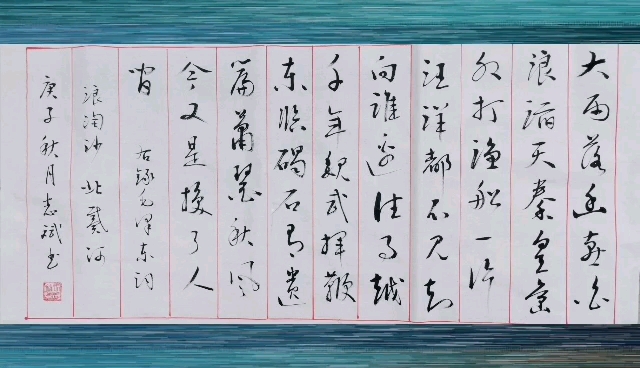 大雨落幽燕白
浪滔天秦皇岛
外打渔船一片
汪洋都不见知
向谁边往事越
千年魏武挥鞭
东临碣石有遗
篇萧瑟秋风
今又是换了人
间 右录毛泽东词
浪淘沙 北戴河
庚子秋月志斌书